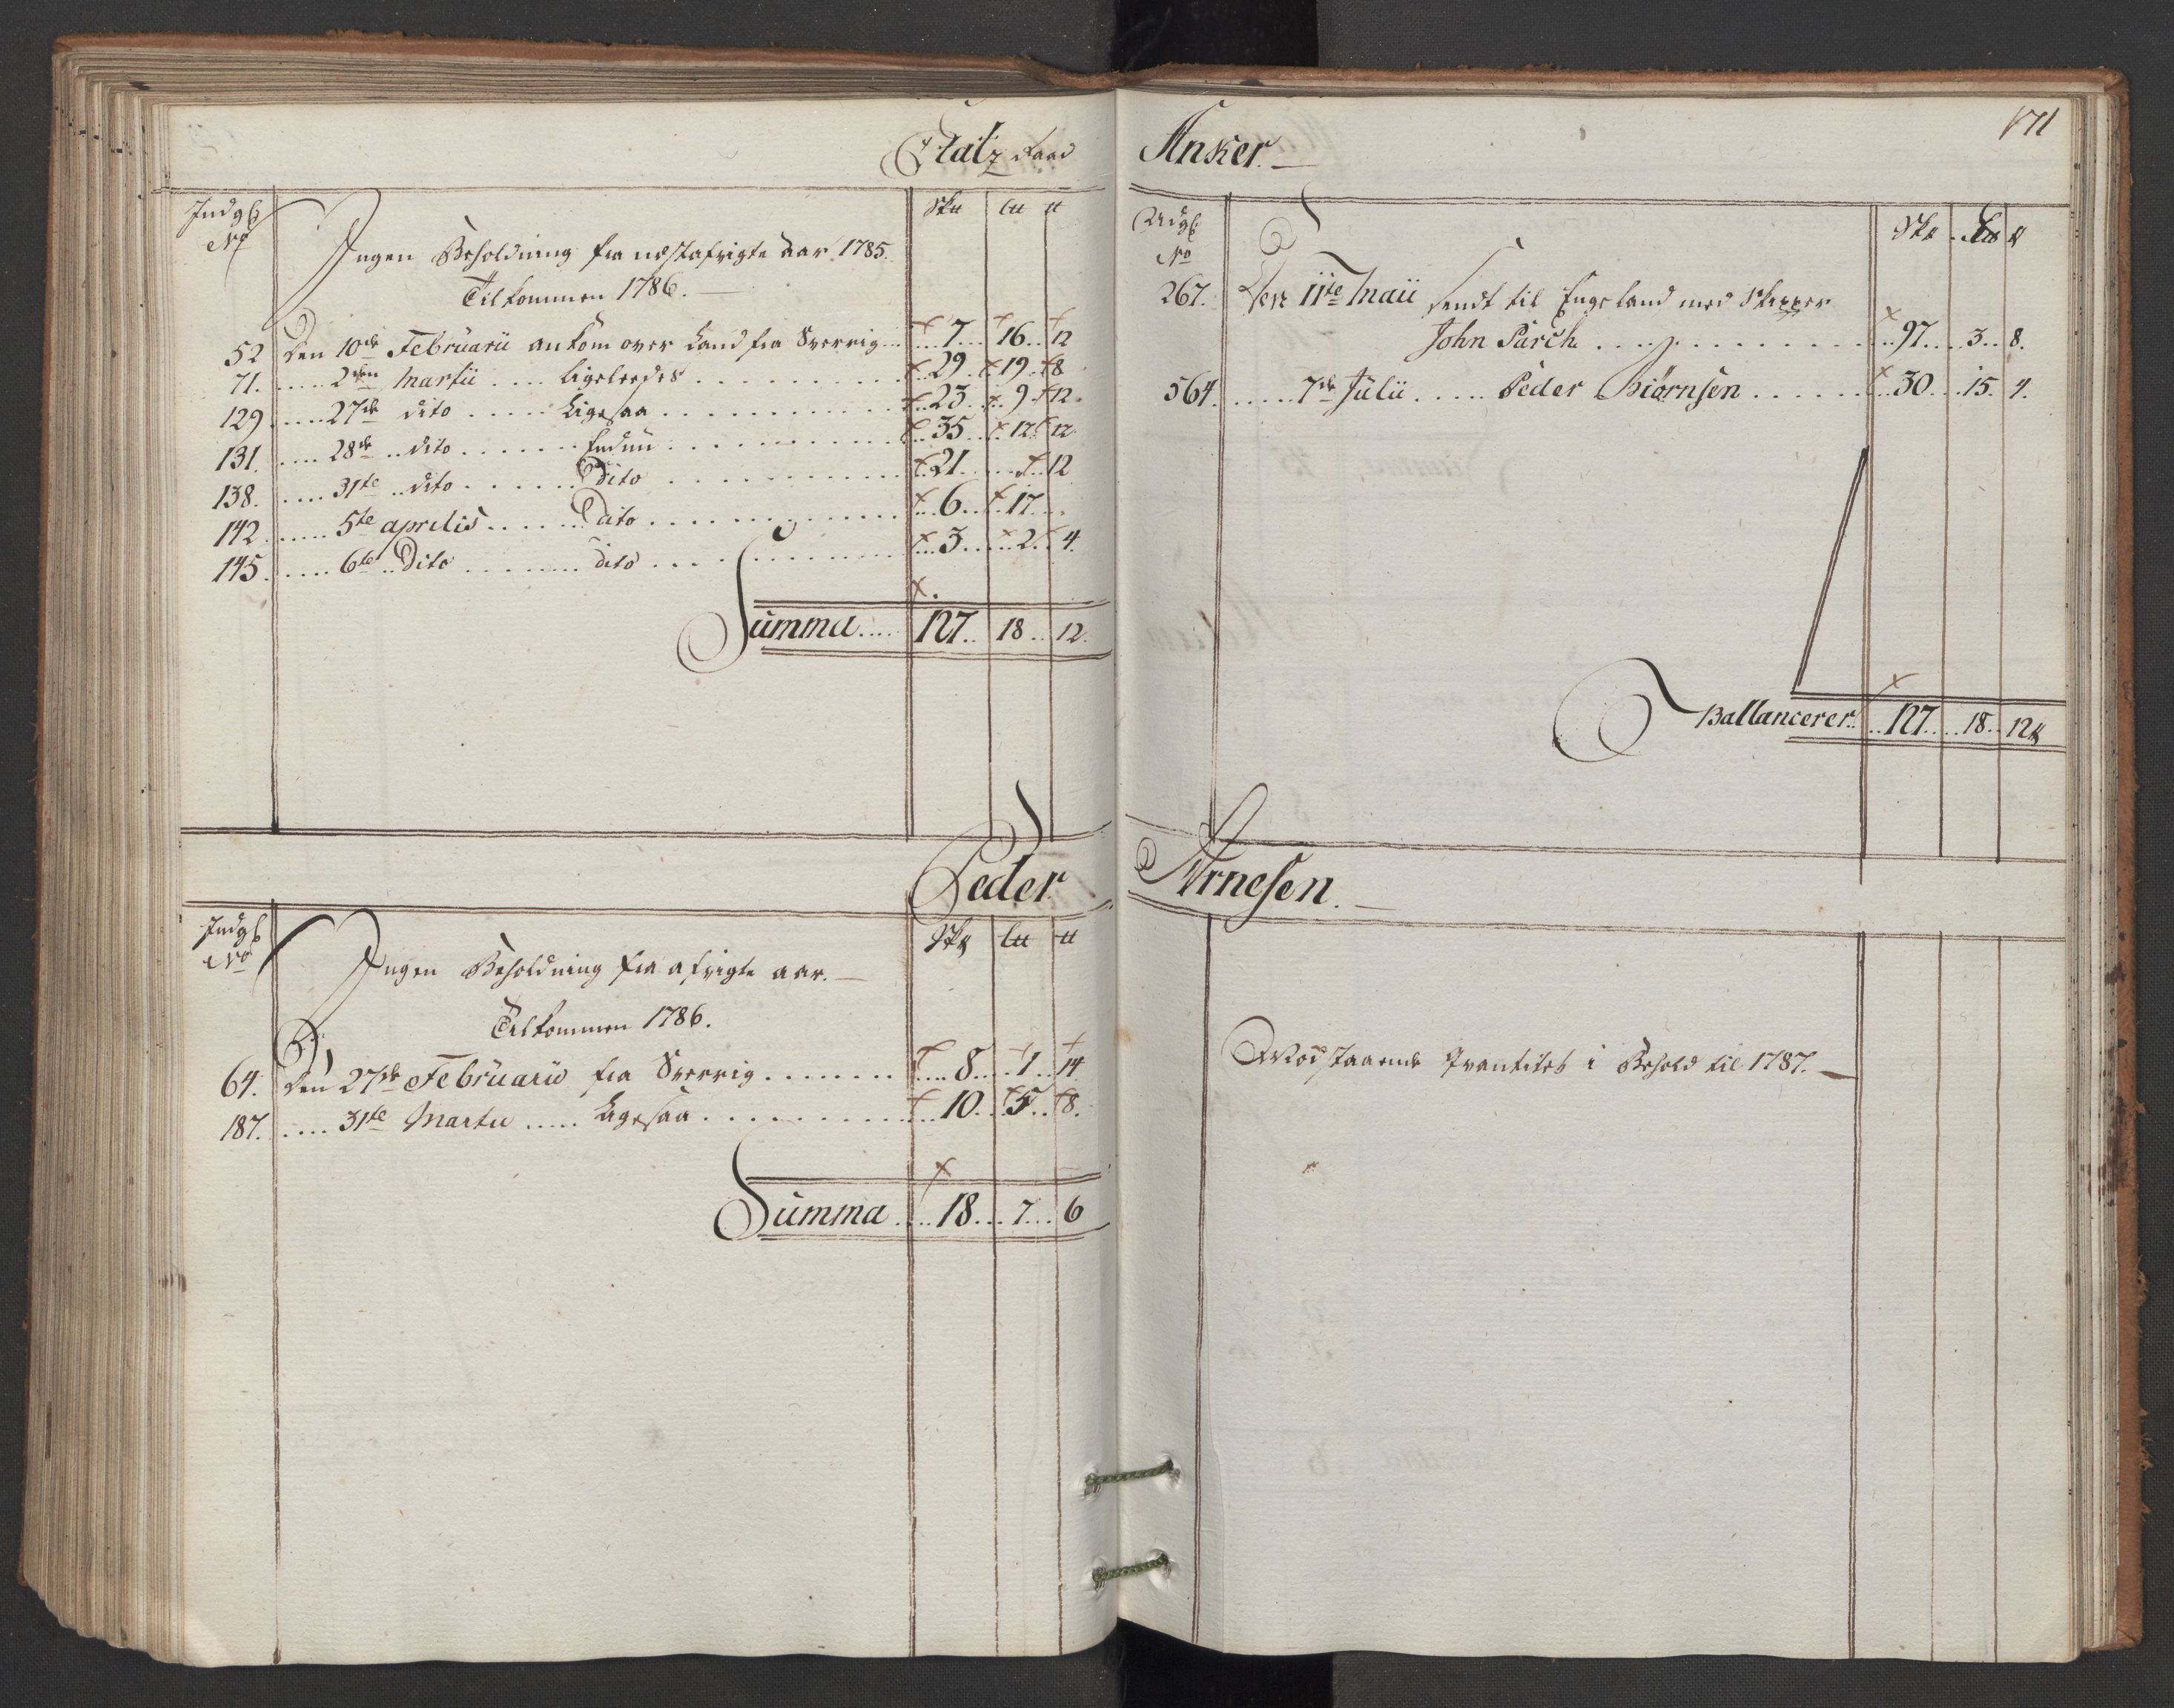 Etatz Raad Anker.
171
Indg: No
Sk℔ L℔ ℔
Ingen Beholdning fra nestafvigte Aar 1785.
Tilkommen 1786.
52 Den 10de Februarii ankom over Land fra Sverrig .... 7 .. 16 .. 12
71. .... 2den Martii .... ligeleedes .... 29 .. 19 .. 8
129 .... 27de dito .... Ligesaa .... 23 .. 9 .. 12.
131. .... 28de dito .... Endnu .... 35 .. 12 .. 12
138. .... 31te dito .... Dito .... 21 .... 12
142 .... 5te aprilis .... Dito .... 6 .. 17 ..
145. .... 6te Dito .... dito .... 3 .. 2 .. 4.
Summa .... 127 .. 18 .. 12.
Udg: No
Sk℔ L℔ ℔
267. Den 11te Maii sendt til Engeland med Skipper
John Parch .... 97 .. 3 .. 8.
564. .... 7de Julii .... Peder Biørnsen .... 30 .. 15. 4.
Ballancerer .. 127 .. 18 .. 12℔
Peder Arnesen.
Indg: No
Sk℔ L℔ ℔
Ingen Beholdning fra afvigte aar.
Tilkommen 1786.
64. Den 27de Februarii fra Sverrig .... 8 .. 1 .. 14
187. .... 31te Martii .... Ligesaa .... 10 .. 5 .. 8.
Summa .... 18 .. 7 .. 6
Modstaaende Qvantitet i Behold til 1787.